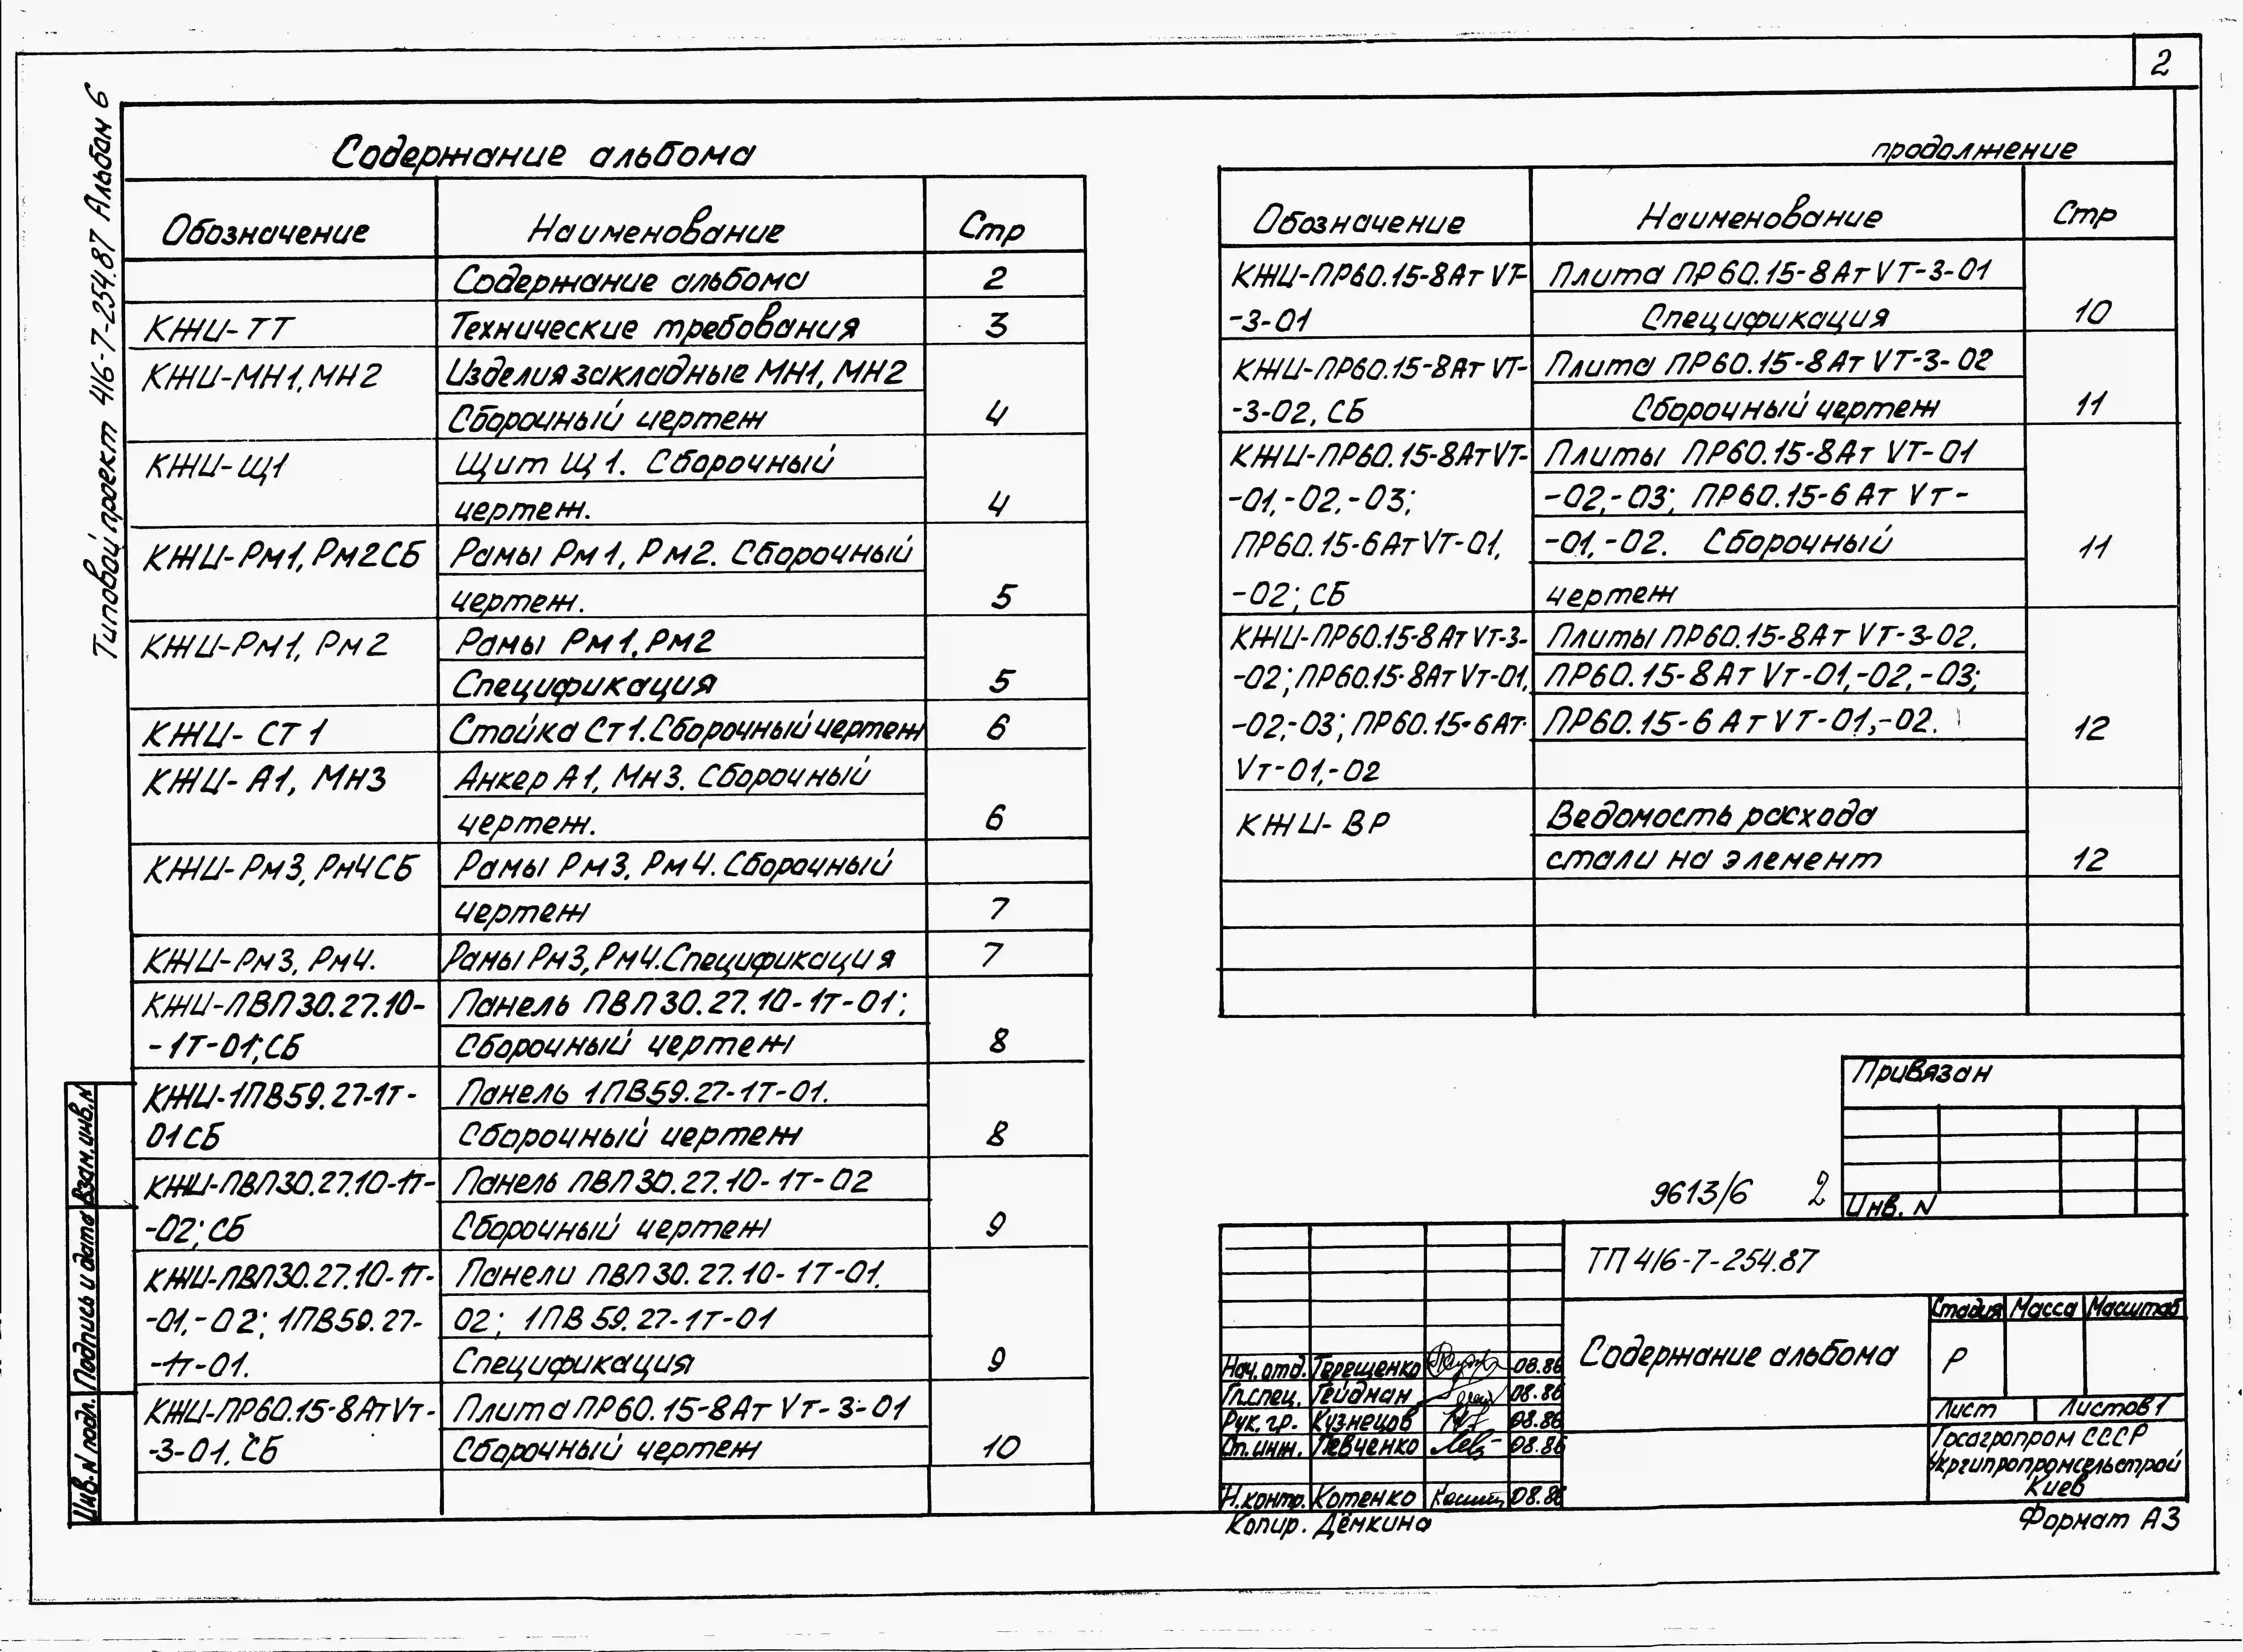 2
Типовой проект 416-7-254.87 Альбом 6
Содержание альбома
Обозначение Наименование Стр
Содержание альбома 2
КЖИ-ТТ Технические требования 3
КЖИ-МН1, МН2 Изделия закладные МН1, МН2
Сборочный чертеж 4
КЖИ-Щ1 Щит Щ1. Сборочный
чертеж. 4
КЖИ-Рм1, Рм2СБ Рамы Рм1, Рм2. Сборочный
чертеж. 5
КЖИ-Рм1, Рм2 Рамы Рм1, Рм2
Спецификация 5
КЖИ-СТ1 Стойка Ст1. Сборочный чертеж 6
КЖИ-А1, Мн3 Анкер А1, Мн3. Сборочный
чертеж. 6
КЖИ-Рм3, Рм4СБ Рамы Рм3, Рм4. Сборочный
чертеж 7
КЖИ-Рм3, Рм4. Рамы Рм3, Рм4. Спецификация 7
КЖИ-ПВП30.27.10- Панель ПВП30.27.10-1т-01;
-1т-01; СБ Сборочный чертеж 8
КЖИ-1ПВ59.27-1т- Панель 1ПВ59.27-1т-01.
01СБ Сборочный чертеж 8
КЖИ-ПВП30.27.10-1т- Панель ПВП30.27.10-1т-02
-02; СБ Сборочный чертеж 9
КЖИ-ПВП30.27.10-1т- Панели ПВП30.27.10-1т-01,
-01,-02; 1ПВ59.27- 02; 1ПВ59.27-1т-01
-1т-01. Спецификация 9
КЖИ-ПР60.15-8АтVт- Плита ПР60.15-8АтVт-3-01
-3-01. СБ Сборочный чертеж 10
продолжение
Обозначение Наименование Стр
КЖИ-ПР60.15-8АтVТ- Плита ПР60.15-8АтVТ-3-01
-3-01 Спецификация 10
КЖИ-ПР60.15-8АтVТ- Плита ПР60.15-8АтVТ-3-02
-3-02, СБ Сборочный чертеж 11
КЖИ-ПР60.15-8АтVТ- Плиты ПР60.15-8АтVТ-01
-01,-02,-03; -02,-03; ПР60.15-6АтVт-
ПР60.15-6АтVТ-01, -01,-02. Сборочный 11
-02; СБ чертеж
КЖИ-ПР60.15-8АтVт-3- Плиты ПР60.15-8АтVТ-3-02,
-02; ПР60.15-8АтVт-01, ПР60.15-8АтVт-01,-02,-03;
-02,-03; ПР60.15-6Ат- ПР60.15-6АтVТ-01,-02. 12
Vт-01,-02
КЖИ-ВР Ведомость расхода
стали на элемент 12
Привязан
Инв. N
9613/6 2
ТП 416-7-254.87
Содержание альбома
Стадия Масса Масштаб
Р
Лист Листов 1
Госагропром СССР
Укргипропромсельстрой
Киев
Нач. отд. Терещенко 08.86
Гл. спец. Гейдман 08.86
Рук. гр. Кузнецов 08.86
Ст. инж. Певченко 08.86
Н. контр. Котенко 08.86
Копир. Дёмкина
Формат А3
Взам. инв. N
Подпись и дата
Инв. N подл.